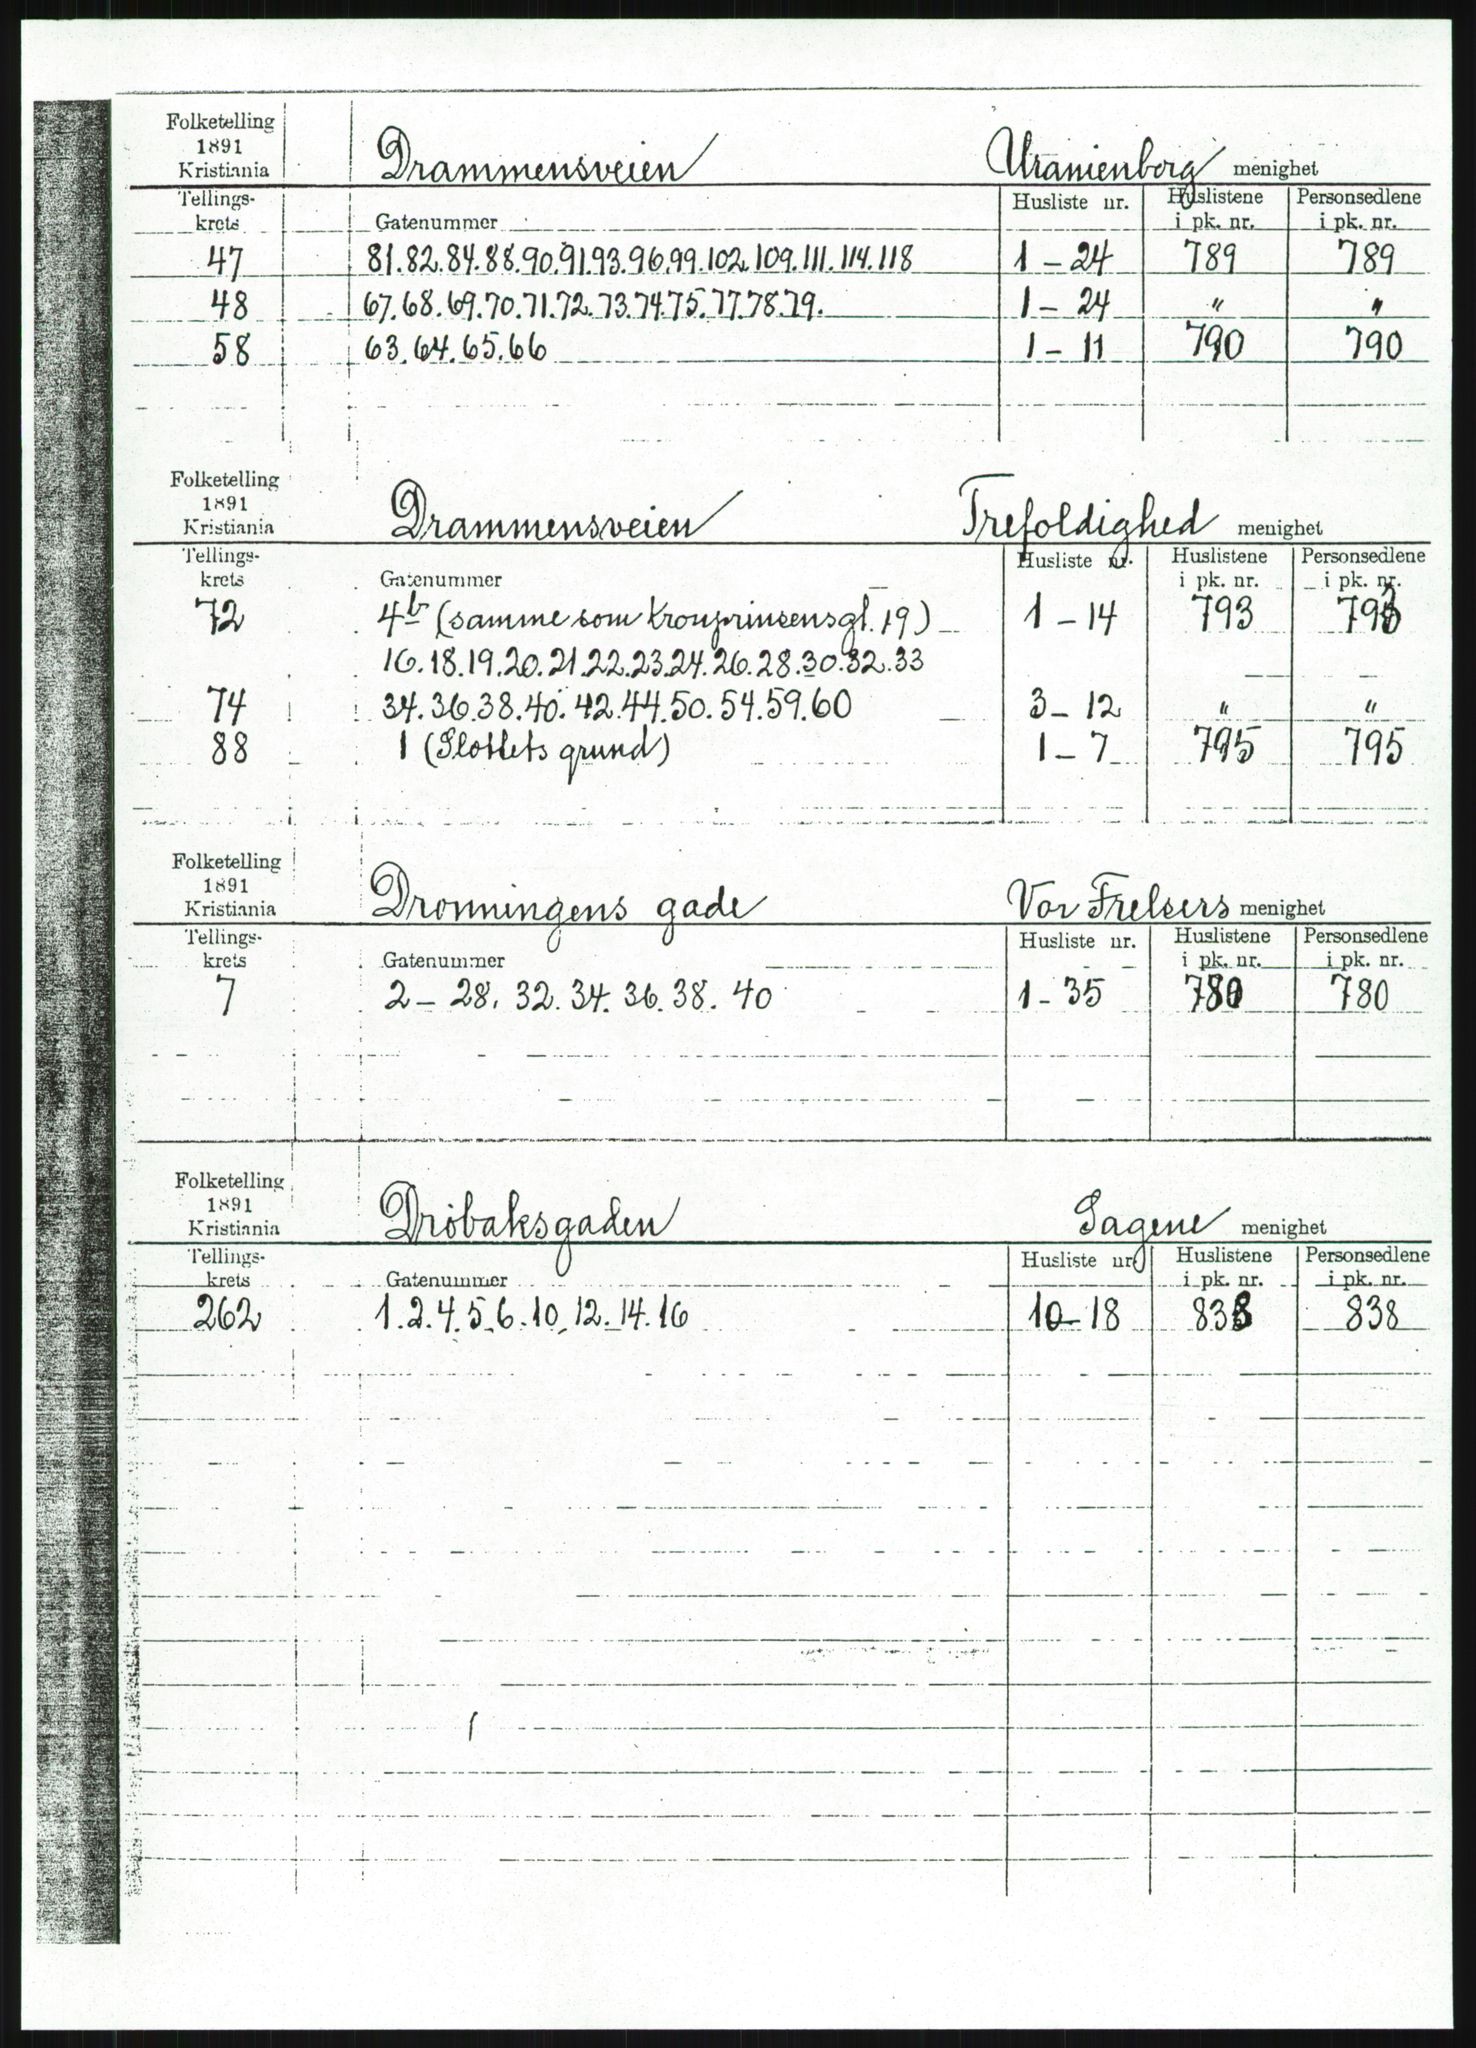 Folketelling
1891
Kristiania Drammensveien Uranienborg menighet
Tellings- Husliste nr. Huslistene Personsedlene
krets Gatenummer i pk. nr. i pk. nr.
47 81.82.84.88.90.91.93.96.99.102.109.111.114.118 1 - 24 789 789
48 67.68.69.70.71.72.73.74.75.77.78.79. 1 - 24 " "
58 63.64.65.66 1 - 11 790 790
Folketelling
1891
Kristiania Drammensveien Trefoldighed menighet
Tellings- Husliste nr. Huslistene Personsedlene
krets Gatenummer i pk. nr. i pk. nr.
72 4b (samme som Kronprinsensgt. 19) 1 - 14 793 793
16.18.19.20.21.22.23.24.26.28.30.32.33
74 34.36.38.40.42.44.50.54.59.60 3 - 12 " "
88 1 (Slottets grund) 1 - 7 795 795
Folketelling
1891
Kristiania Dronningens gade Vor Frelsers menighet
Tellings- Husliste nr. Huslistene Personsedlene
krets Gatenummer i pk. nr. i pk. nr.
7 2 - 28. 32. 34. 36. 38. 40 1 - 35 780 780
Folketelling
1891
Kristiania Drøbaksgaden Sagene menighet
Tellings- Husliste nr. Huslistene Personsedlene
krets Gatenummer i pk. nr. i pk. nr.
262 1.2.4.5.6.10.12.14.16 10 - 18 838 838